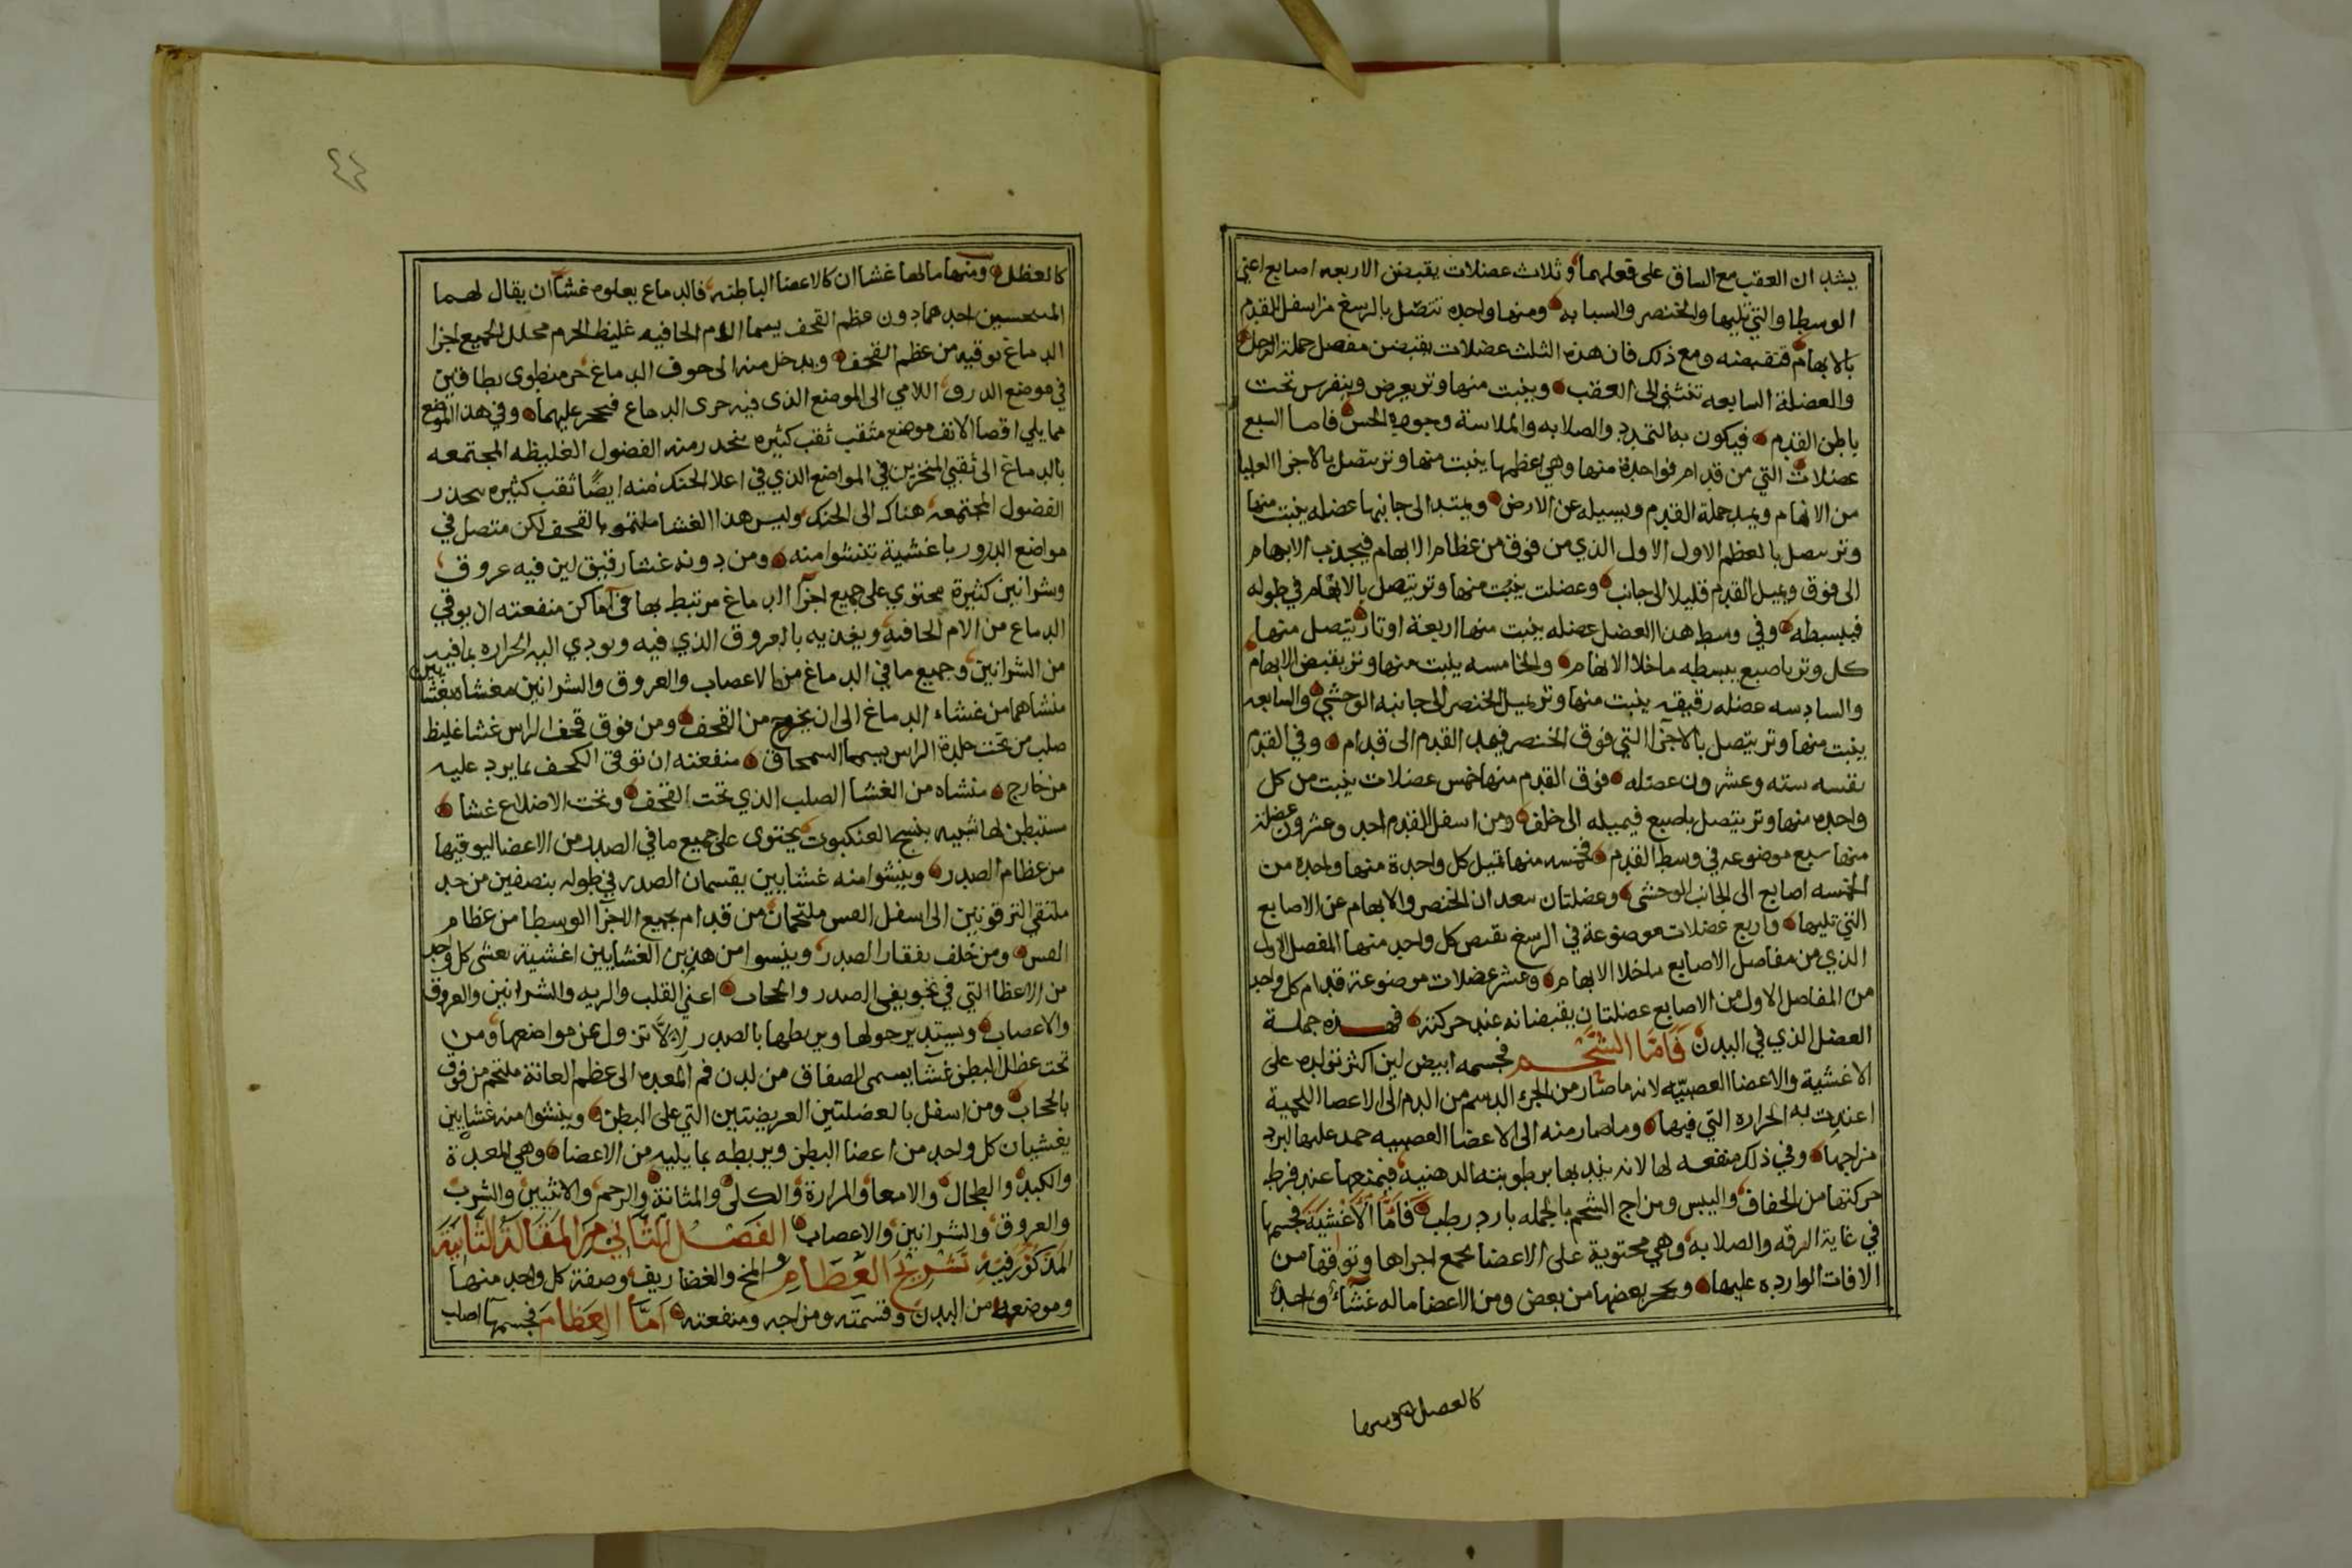 يشد ان العقب مع الساق على فعلهما وثلاث عضلات يقبضن الاربعه اصابع اعني
الوسطا والتي تليها والخنصر والسبابه ومنها واحده تتصل بالرسغ من اسفل القدم
بالابهام فتقبضه ومع ذلك فان هذه الثلث عضلات يقبضن مفصل جملة الرجل
والعضلة السابعه تنثني الى العقب وينبت منها وتر يعرض وينفرس تحت
باطن القدم فيكون به التمدد والصلابه والملاسة وجودة الحس فاما السبع
عضلات التي من قدام فواحدة منها وهي اعظمها ينبت منها وتر يتصل بالاجزا العليا
من الابهام ويمد جملة القدم ويسيله عن الارض ويمتد الى جانبها عضله ينبت منها
وتر يتصل بالعظم الاول الاول الذي من فوق من عظام الابهام فيجذب الابهام
الى فوق ويميل القدم قليلا الى جانب وعضلت ينبت منها وتر يتصل بالابهام في طوله
فيبسطه وفي وسط هذا العضل عضله ينبت منها اربعة اوتار يتصل منها
كل وتر باصبع يبسطه ماخلا الابهام والخامسه ينبت منها وتر يقبض الابهام
والسادسه عضله رقيقه ينبت منها وتر يميل الخنصر الى جانبه الوحشي والسابعه
ينبت منها وتر يتصل بالاجزا التي فوق الخنصر فيمد القدم الى قدام وفي القدم
نفسه سته وعشرون عضله فوق القدم منها خمس عضلات ينبت من كل
واحده منها وتر يتصل باصبع فيميله الى خلف ومن اسفل القدم احد وعشرون عضلة
منها سبع موضوعه في وسط القدم فخمسه منها تميل كل واحدة منها واحده من
الخمسه اصابع الى الجانب الوحشى وعضلتان سعدان الخنصر والابهام عن الاصابع
التي تليها واربع عضلات موضوعة في الرسغ تقبض كل واحد منها المفصل الاول
الذي من مفاصل الاصابع ماخلا الابهام وعشر عضلات موضوعة قدام كل واحد
من المفاصل الاول من الاصابع عضلتان يقبضانه عند حركته فهذه جملة
العضل الذي في البدن فَامّا الشَّحْم فجسمه ابيض لين اكثر تولده على
الاغشية والاعضا العصبيّه لانه ماصار من الجزء الدسم من الدم الى الاعضا اللحمية
اغتدت به الحراره التي فيها وماصار منه الى الاعضا العصبيه جمد عليها لبرد
مزاجها وفي ذلك منفعه لها لانه يند بها برطوبته الدهنية فيمنعها عند فرط
حركتها من الجفاف واليبس ومزاج الشحم بالجمله بارد رطب فَامَّا الاَغْشِيَة فجسمها
في غاية الرقه والصلابه وهي محتوية على الاعضا تجمع اجزاها وتوافقها من
الافات الوارده عليها وتحجز بعضها من بعض ومن الاعضا ماله غشآء واحد
كالعضل ومنها
٤٤
كالعظل ومنها مالها غشاان كالاعضا الباطنه فالدماغ يعلوه غشآان يقال لهما
احدهما دون عظم القحف يسما الام الجافيه غليظ الجرم محلل لجميع اجزا
الدماغ توقيه من عظم القحف ويدخل منه الى جوف الدماغ جزء منطوي بطاقين
في موضع الدرق اللامي الى الموضع الذي فيه جزئ الدماغ فيحجز عليهما وفي هذا الموضع
مما يلي اقصا الانف موضع مثقب ثقب كثيره ينحدر منه الفضول الغليظه المجتمعه
بالدماغ الى ثقبي المنخرين في المواضع الذي في اعلا الحنك منه ايضًا ثقب كثيره ينحدر
الفضول المجتمعه هناك الى الحنك وليس هذا الغشا ملتحم بالقحف لكن متصل في
مواضع الدرور باغشية تنشوا منه ومن دونه غشا رقيق لين فيه عروق
وشرايين كثيرة محتوي على جميع اجزآ الدماغ مرتبط بها في اماكن منفعته ان يوقي
الدماغ من الام الجافية ويغذيه بالعروق الذي فيه ويودي اليه الحراره بما فيه
من الشرانين وجميع مافي الدماغ من الاعصاب والعروق والشرانين مغشاه بغشايين
منشاهما من غشاء الدماغ الى ان يخرج من القحف ومن فوق قحف الراس غشا غليظ
صلب من تحت جلدة الراس يسما السمحاق منفعته ان توقى الكحف مما يرد عليه
من خارج منشاه من الغشا الصلب الذي تحت القحف وتحت الاضلاع غشا
مستبطن لها شبيه بنسج العنكبوت يحتوى على جميع مافي الصدر من الاعضا ليوقيها
من عظام الصدر وينشوا منه غشايين يقسمان الصدر في طوله بنصفين من حد
ملتقي الترقوتين الى اسفل القس ملتحمان من قدام بجميع الاجزا الوسطا من عظام
القس ومن خلف بفقار الصدر وينشوا من هذين الغشايين اغشية تغشى كل واحد
من الاعظا التي في تجويفي الصدر والحجاب اعني القلب والريه والشرانين والعروق
والاعصاب ويستدير حولها ويربطها بالصدر لئلا تزول عن مواضعها ومن
تحت عظل البطن غشآ يسمى الصفاق من لدن فم المعده الى عظم العانة ملتحم من فوق
بالحجاب ومن اسفل بالعضلتين العريضتين التي على البطن وينشوا منه غشايين
يغشيان كل واحد من اعضا البطن ويربطه بما يليه من الاعضا وهي المعدة
والكبد والطحال والامعا والمرارة والكلى والمثانة والرحم والانثيين والثرب
والعروق والشرانين والاعصاب الفَصْل الثَّاني مِنَ المَقَالَة الثَّانِيَة
المَذكُور فِيهِ تَشْرِيح العِظَامِ والمخ والغضاريف وصفة كل واحد منها
وموضعها من البدن وقسمته ومزاجه ومنفعته اَمَّا العِظَام فجسمها اصلب